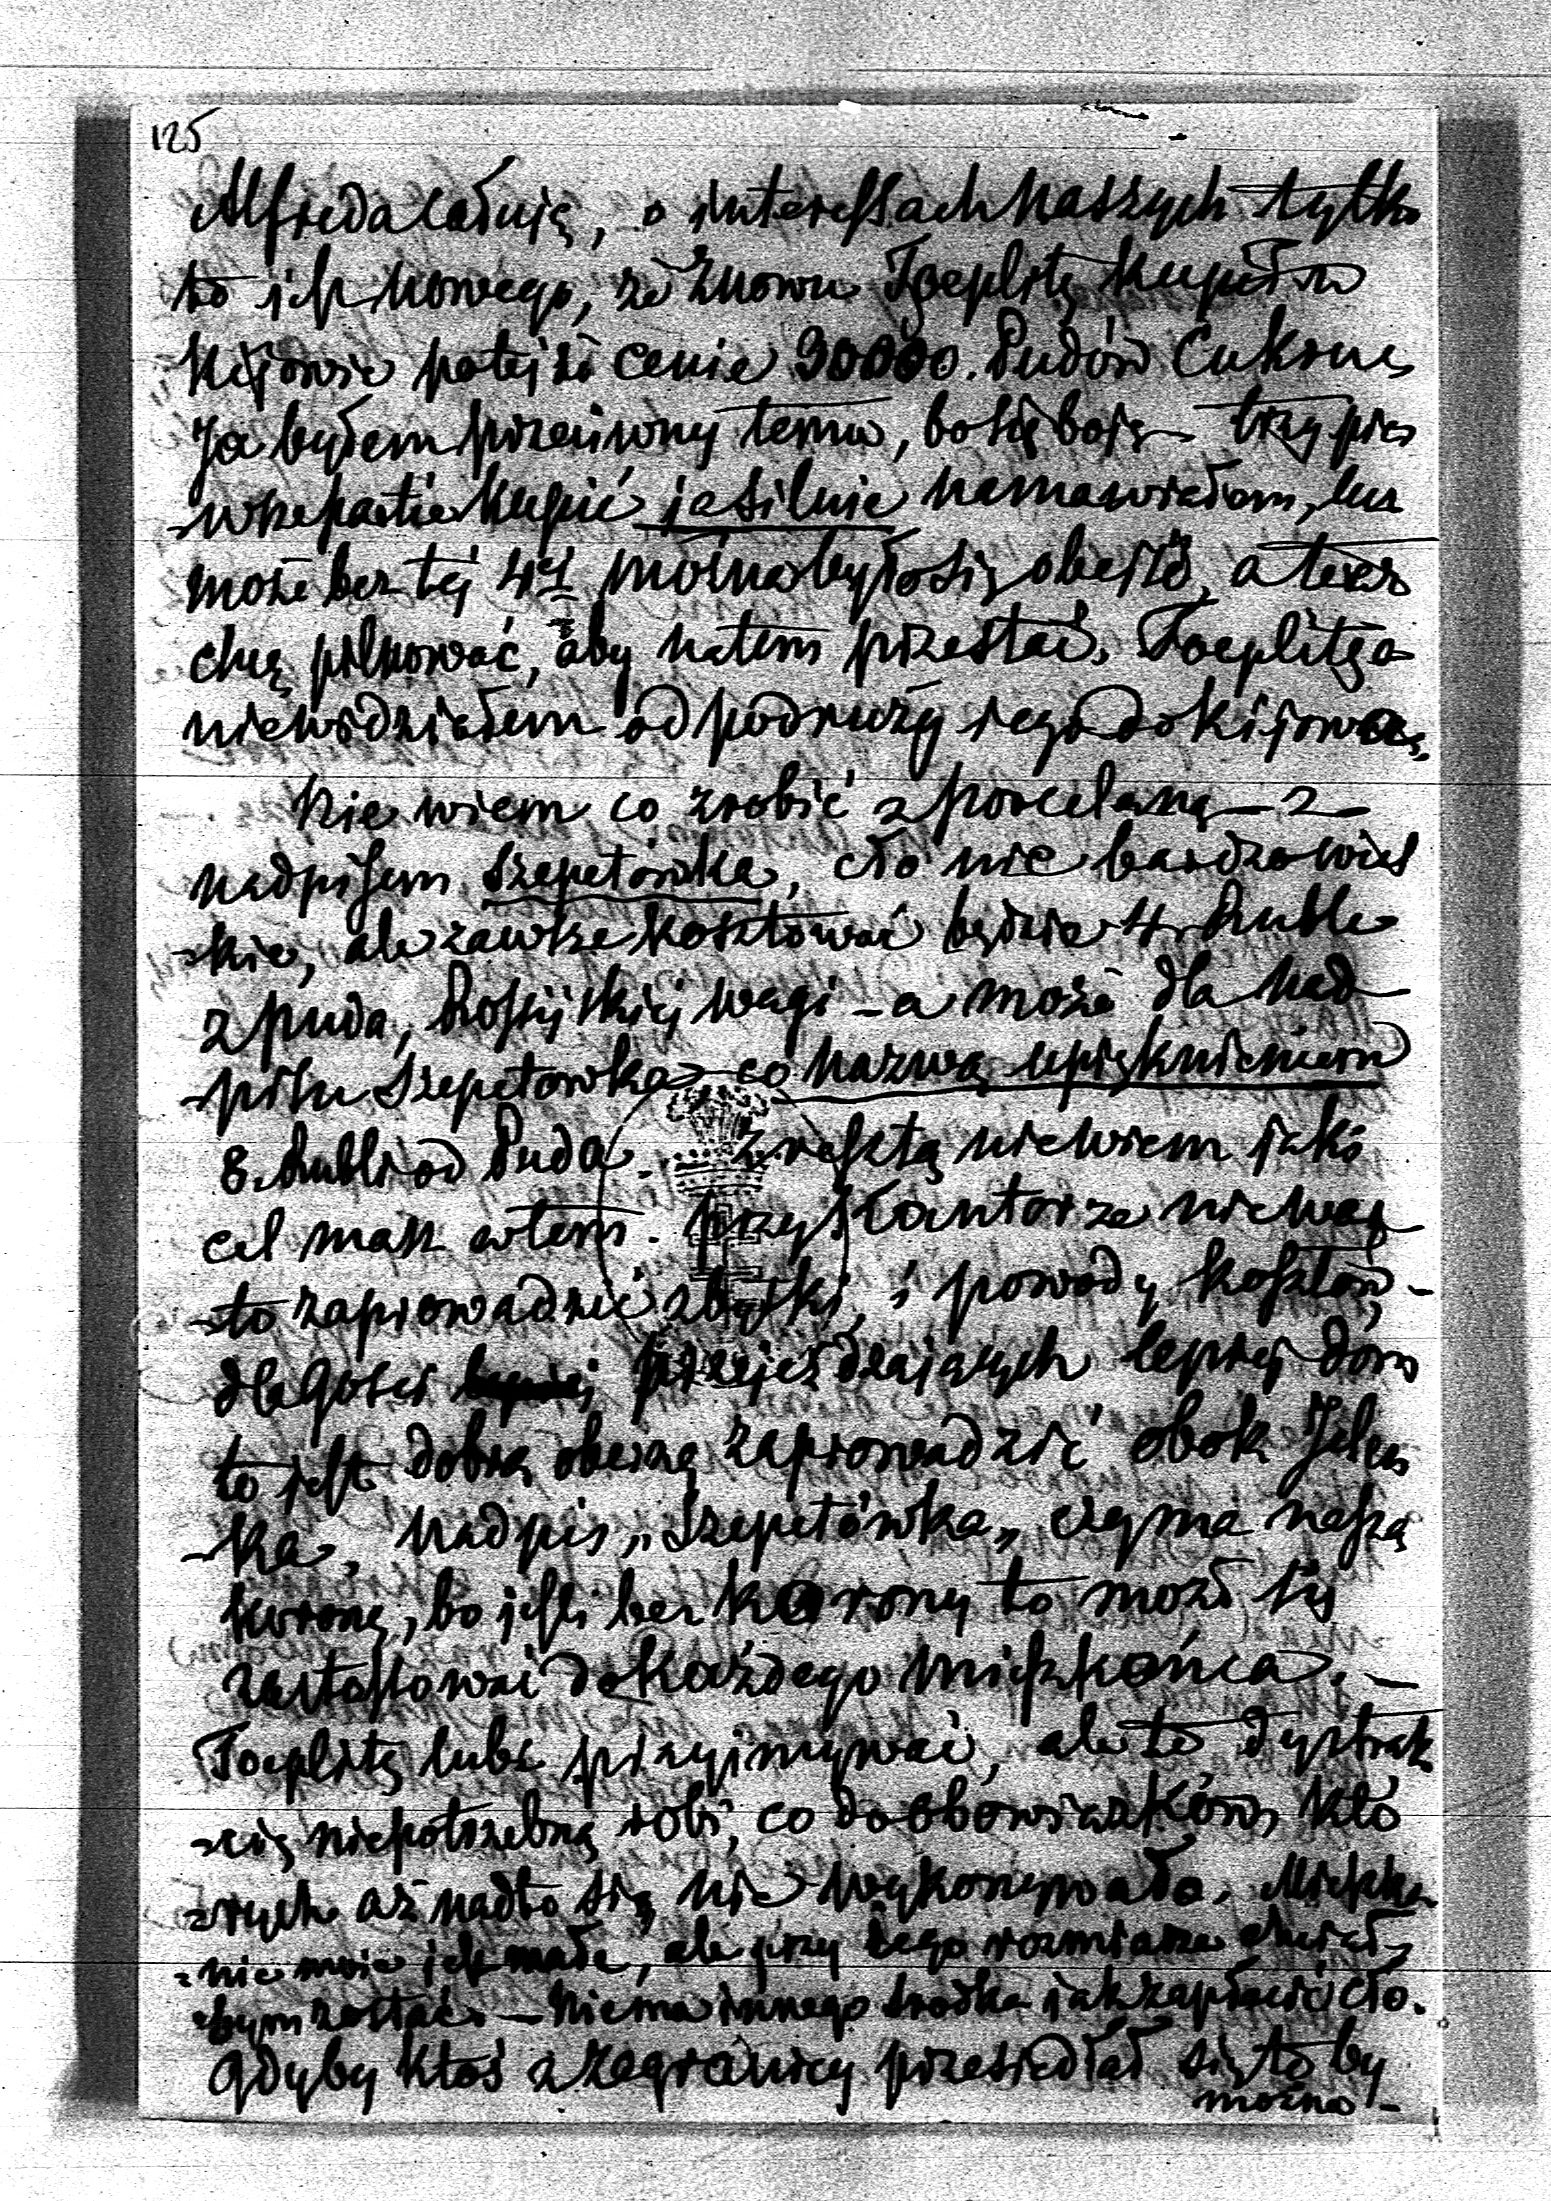 125
Alfreda całuję, o interessach naszych tylko
to jest nowego, że znowu Toeplitz kupił w
Kijowie po tejże cenie 30000. Pudów Cukru,
Ja byłem przeciwny temu, bo się boję – trzy pier
-wsze partie kupić ja silnie namawiałem, lecz
może bez téj 4éj można było się obejść, a teraz
chcę pilnować, aby na tem przestać. Toeplitza
niewidziałem od podruży jego do Kijowa.
Nie wiem co zrobić z porcelaną – z
nadpisem Szepetówka, cło nie bardzo wiel
-kie, ale zawsze kosztować będzie 4 Ruble
z puda, Rossijskiej wagi – a może dla nad
-pisu Szepetowka co nazwą upięknieniem
8. Rubli od Puda. Zresztą niewiem jaki
cel masz w tem. przy Kantorze niewar
-to zaprowadzić zbytki, i powody kosztów –
dla Gości przejeżdżających lepiej dom
to jest dobrą oberzę zaprowadzić obok Jelen
-ka, Nadpis „Szepetówka„ czy ma naszą
koronę, bo jeśli bez korony to może się
zastosować do każdego mieszkańca. –
Toeplitz lubi przyjmywać, ale to dystrak
-cię niepotrzebną robi, co do obowiązków któ
-rych aż nadto się nie wykonywało. Mieszka
-nie moie jest małe, ale przy tego rozmiarze chciał
-bym zostać. – Niema innego srodka jak zapłacić cło.
Gdyby ktoś z zagranicy przesiedlał się to by
można –